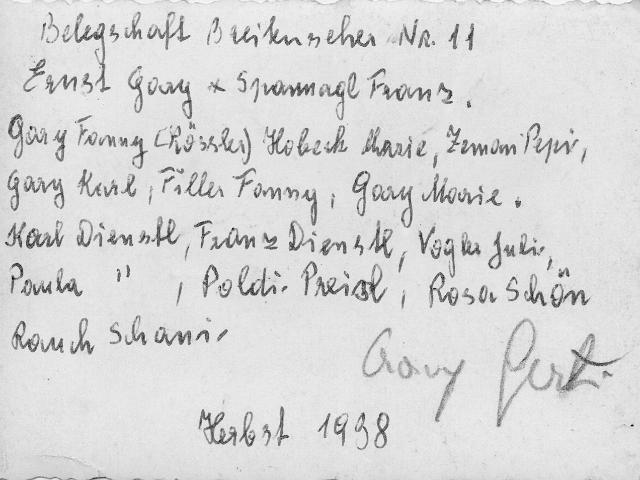 Belegschaft Breitenseher Nr. 11
Ernst Gary & Spannagl Franz.
Gary Fanny (Rössler) Hobeck Marie, Zeman Pepi,
Gary Karl, Filler Fanny, Gary Marie.
Karl Dienstl, Franz Dienstl, Vogler Juli,
Paula " , Poldi Preisl, Rosa Schön
Rauch Schani
Gary Gerti
Herbst 1938